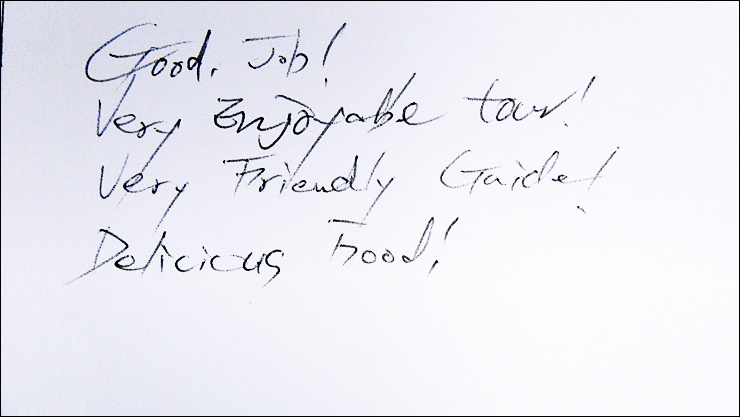 Good. Job!
Very Enjoyable tour!
Very Friendly Guide!
Delicious Food!